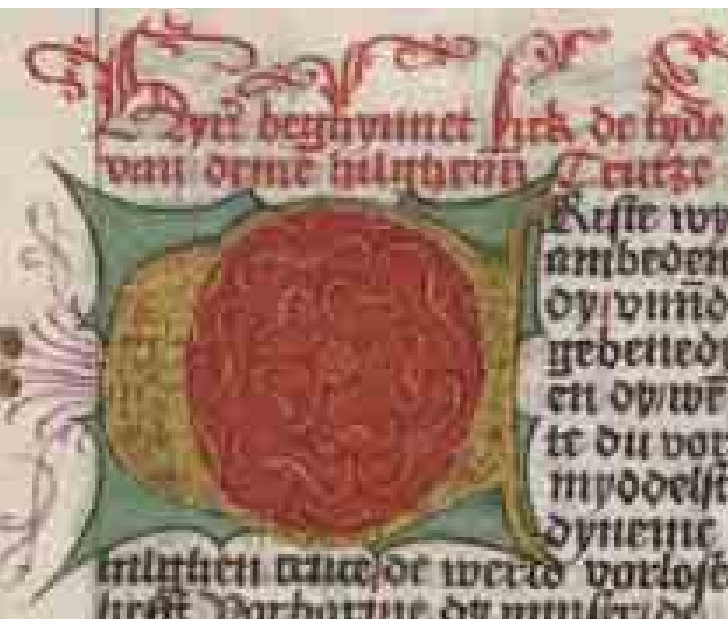 Hyre begnynnet sick de tyde
van deme hilghenn Crutze
Criste wy
ambeden
dy vund
gebenedy
en dy we
te du vor
myddelst
dyneme
hilghen cruce de werld vorlost
hefft